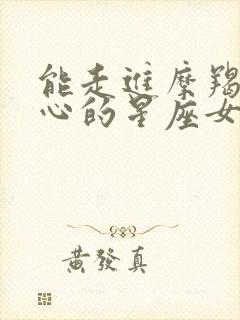 能走進摩羯
心的星座女
黃發真